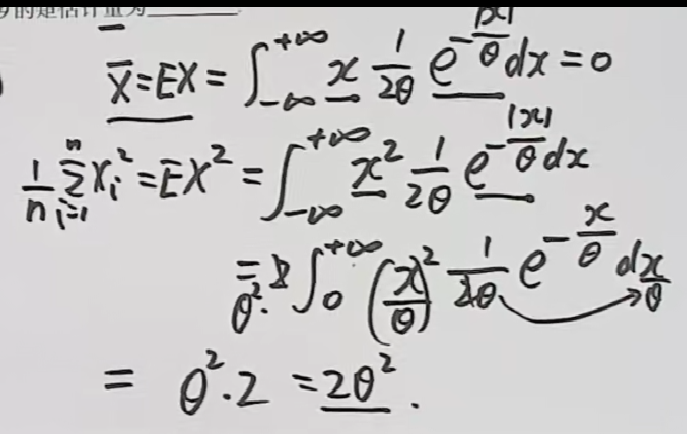 的矩估计量为
X̄=EX=∫_{-∞}^{+∞} x 1/(2θ) e^{-|x|/θ} dx=0
1/n Σ_{i=1}^{n} X_i²=EX²=∫_{-∞}^{+∞} x² 1/(2θ) e^{-|x|/θ} dx
=θ²·2∫_0^{+∞} (x/θ)² 1/(2θ) e^{-x/θ} dx/θ
=θ²·2=2θ².